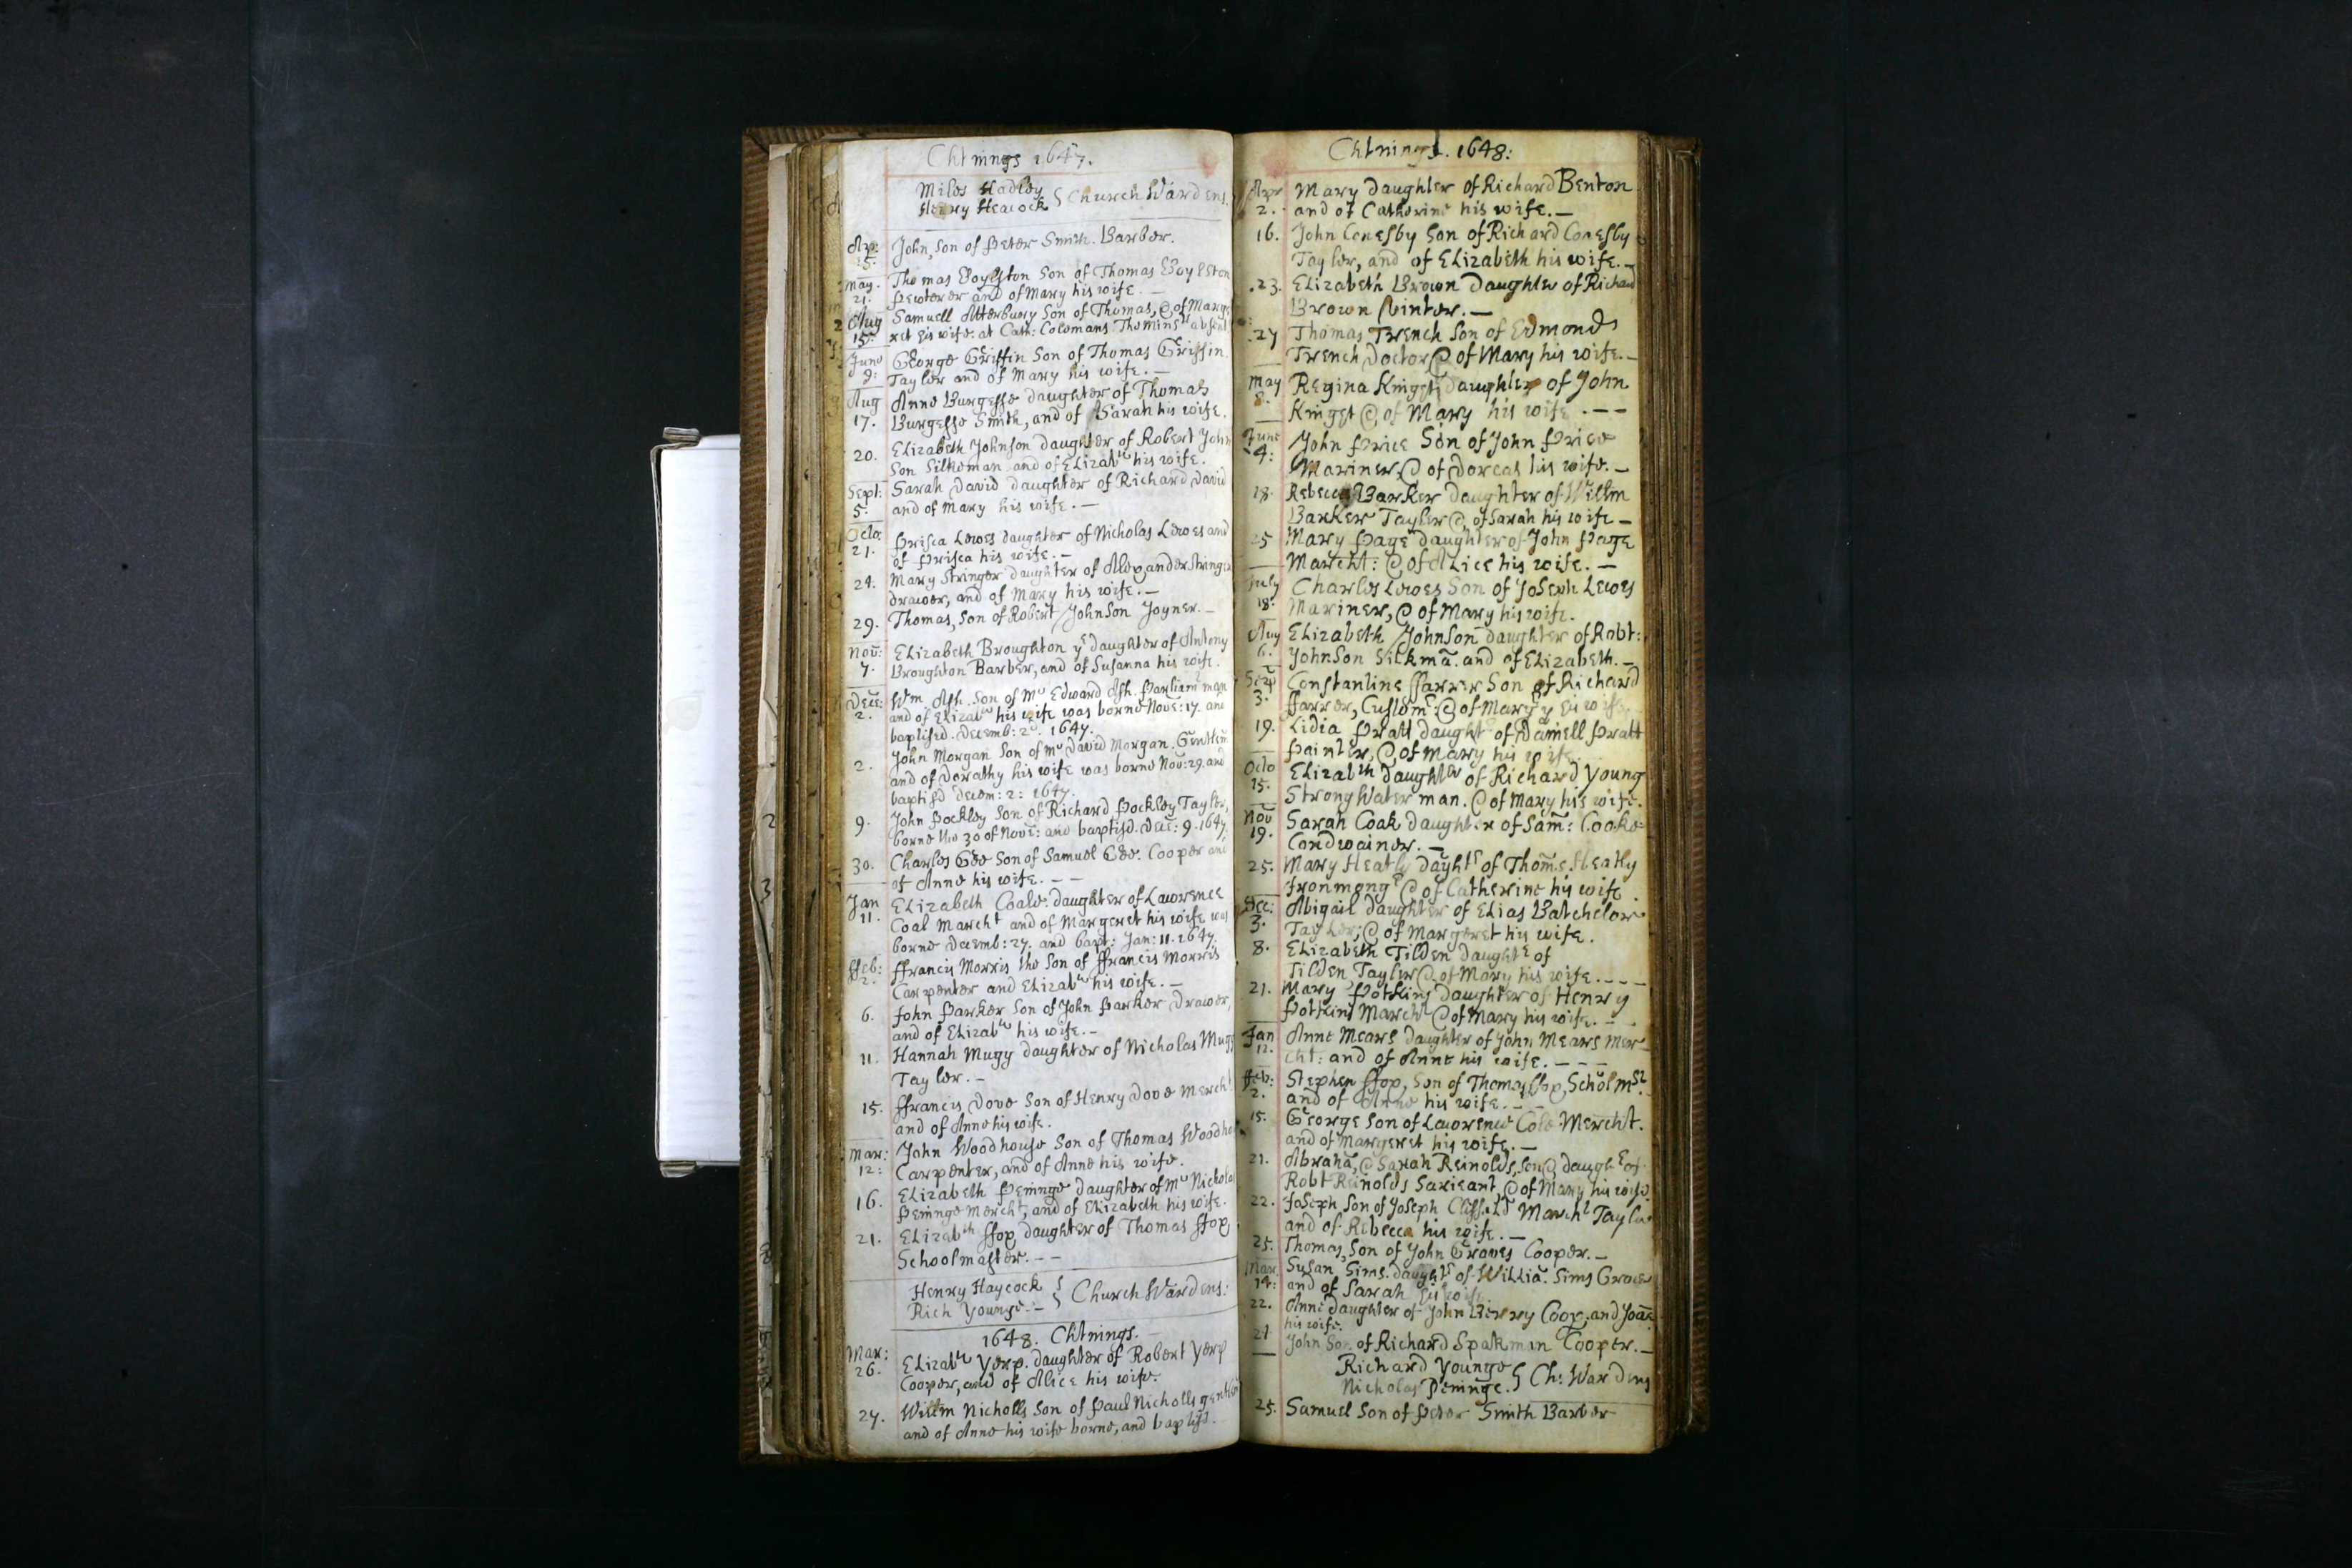 Chtnings 1647.
Miles Hadley
Henry Heacock } Church Wardens.
Ap: John, son of Peter Smith. Barber.
15.
May. Thomas Boylston Son of Thomas Boylston
21. Pewterer and of Mary his wife. —
Aug Samuell Atterbury Son of Thomas, & of Marg
15. ret his wife. at Cath: Colomans absent
June George Griffin Son of Thomas Griffin
9: Tayler and of Mary his wife. —
Aug Anne Burgesse daughter of Thomas
17. Burgesse Smith, and of Sarah his wife.
20. Elizabeth Johnson daughter of Robert John
Son Silkeman and of Elizabth his wife.
Sept: Sarah David daughter of Richard David
5. and of Mary his wife. —
Octo: Prisca Lewes daughter of Nicholas Lewes and
21. of Prisca his wife. —
24. Mary Stringer daughter of Alexander Stringer
drawer, and of Mary his wife. —
29. Thomas, Son of Robert Johnson Joyner. —
Nov: Elizabeth Broughton ye daughter of Antony
7. Broughton Barber, and of Susanna his wife.
Dece: Wm. Ash. Son of Mr Edward Ash. Parliamt man
2. and of Elizabth his wife was borne Nove: 17. and
baptised. Decemb: 2d. 1647.
2. John Morgan Son of Mr David Morgan. Gentlem
and of Dorathy his wife was borne Nov: 29. and
baptisd Decem: 2: 1647.
9. John Pockley Son of Richard Pockley Tayler,
borne the 30 of Nove: and baptisd. Dec: 9. 1647.
30. Charles Gee Son of Samuel Gee. Cooper and
of Anne his wife. — —
Jan Elizabeth Coale. daughter of Lawrence
11. Coal Marcht and of Margeret his wife was
borne Decemb: 27. and bapt: Jan: 11. 1647.
ffeb: ffrancis Morris the Son of ffrancis Morris
2. Carpenter and Elizabth his wife. —
6. John Parker Son of John Parker Drawer,
and of Elizabth his wife. —
11. Hannah Mugg daughter of Nicholas Mugg
Tayler. —
15. ffrancis Dove Son of Henry Dove Mercht
and of Anne his wife.
Mar: John Woodhouse Son of Thomas Woodho
12: Carpenter, and of Anne his wife.
16. Elizabeth Peninge daughter of Mr Nicholas
Peninge Mercht, and of Elizabeth his wife.
21. Elizabth ffox daughter of Thomas ffox
Schoolmaster. — —
Henry Haycock
Rich Younge. — } Church Wardens:
1648. Chtnings.
Mar: Elizabth Yerp. daughter of Robert Yerp
26. Cooper, and of Alice his wife.
27. Willm Nicholls Son of Paul Nicholls gentlem
and of Anne his wife borne, and baptisd.
Chtnings. 1648:
Apr Mary daughter of Richard Benton
2. and of Catherine his wife. —
16. John Conesby Son of Richard Conesby
Tayler, and of Elizabeth his wife. —
23. Elizabeth Brown Daughter of Richard
Brown Vinter. —
27 Thomas Trench Son of Edmond
Trench Doctor & of Mary his wife. —
May Regina Kingst daughter of John
8. Kingst & of Mary his wife. — —
June John Price Son of John Price
4: Mariner & of Dorcas his wife. —
18. Rebecca Barker Daughter of Willm
Barker Tayler & of Sarah his wife —
25 Mary Page daughter of John Page
Marcht: & of Alice his wife. —
July Charles Lewes Son of Joseph Lewes
18. Mariner, & of Mary his wife.
Aug Elizabeth Johnson daughter of Robt:
6. Johnson Silkmā. and of Elizabeth. —
Sep Constantine ffarrer Son of Richard
3. ffarrer, & of Mary his wife.
19. Lidia Pratt daught of Daniell Pratt
Painter, & of Mary his wife
Octo Elizabth daughter of Richard Young
15. Strong Water man. & of Mary his wife.
Nov Sarah Coak daughter of Sam: Cooke
19. Cordwainer. —
25. Mary Heatly daughtr of Thoms. Heatly
Ironmongr & of Catherine his wife
Dec: Abigail daughter of Elias Batchelor
3. Tayler, & of Margeret his wife.
8. Elizabeth Tilden Daughtr of
Tilden Tayler & of Mary his wife. — — —
21. Mary Potkins Daughter of Henry
Potkins Marcht & of Mary his wife. —
Jan Anne Mears Daughter of John Mears Mer-
12. cht: and of Anne his wife. — — —
ffeb: Stephen ffox, Son of Thomas ffox, Scholmstr
2. and of Anne his wife. — —
15. George Son of Lawrence Cole Mercht.
and of Margeret his wife. —
21. Abrahā, & Sarah Reinolds, Son & daughtr of
Robt Reinolds Sarieant, & of Mary his wife.
22. Joseph Son of Joseph Marcht Tayler
and of Rebecca his wife. —
25. Thomas, Son of John Graves Cooper. —
Mar. Susan Sims. daughtr of Williā. Sims Grocer
14: and of Sarah his wife
22. Anne daughter of John Berry Coop. and Joane
his wife.
21 John Son of Richard Spakman Cooper. —
Richard Younge
Nicholas Peninge. } Ch: Wardens
25. Samuel Son of Peter Smith Barber